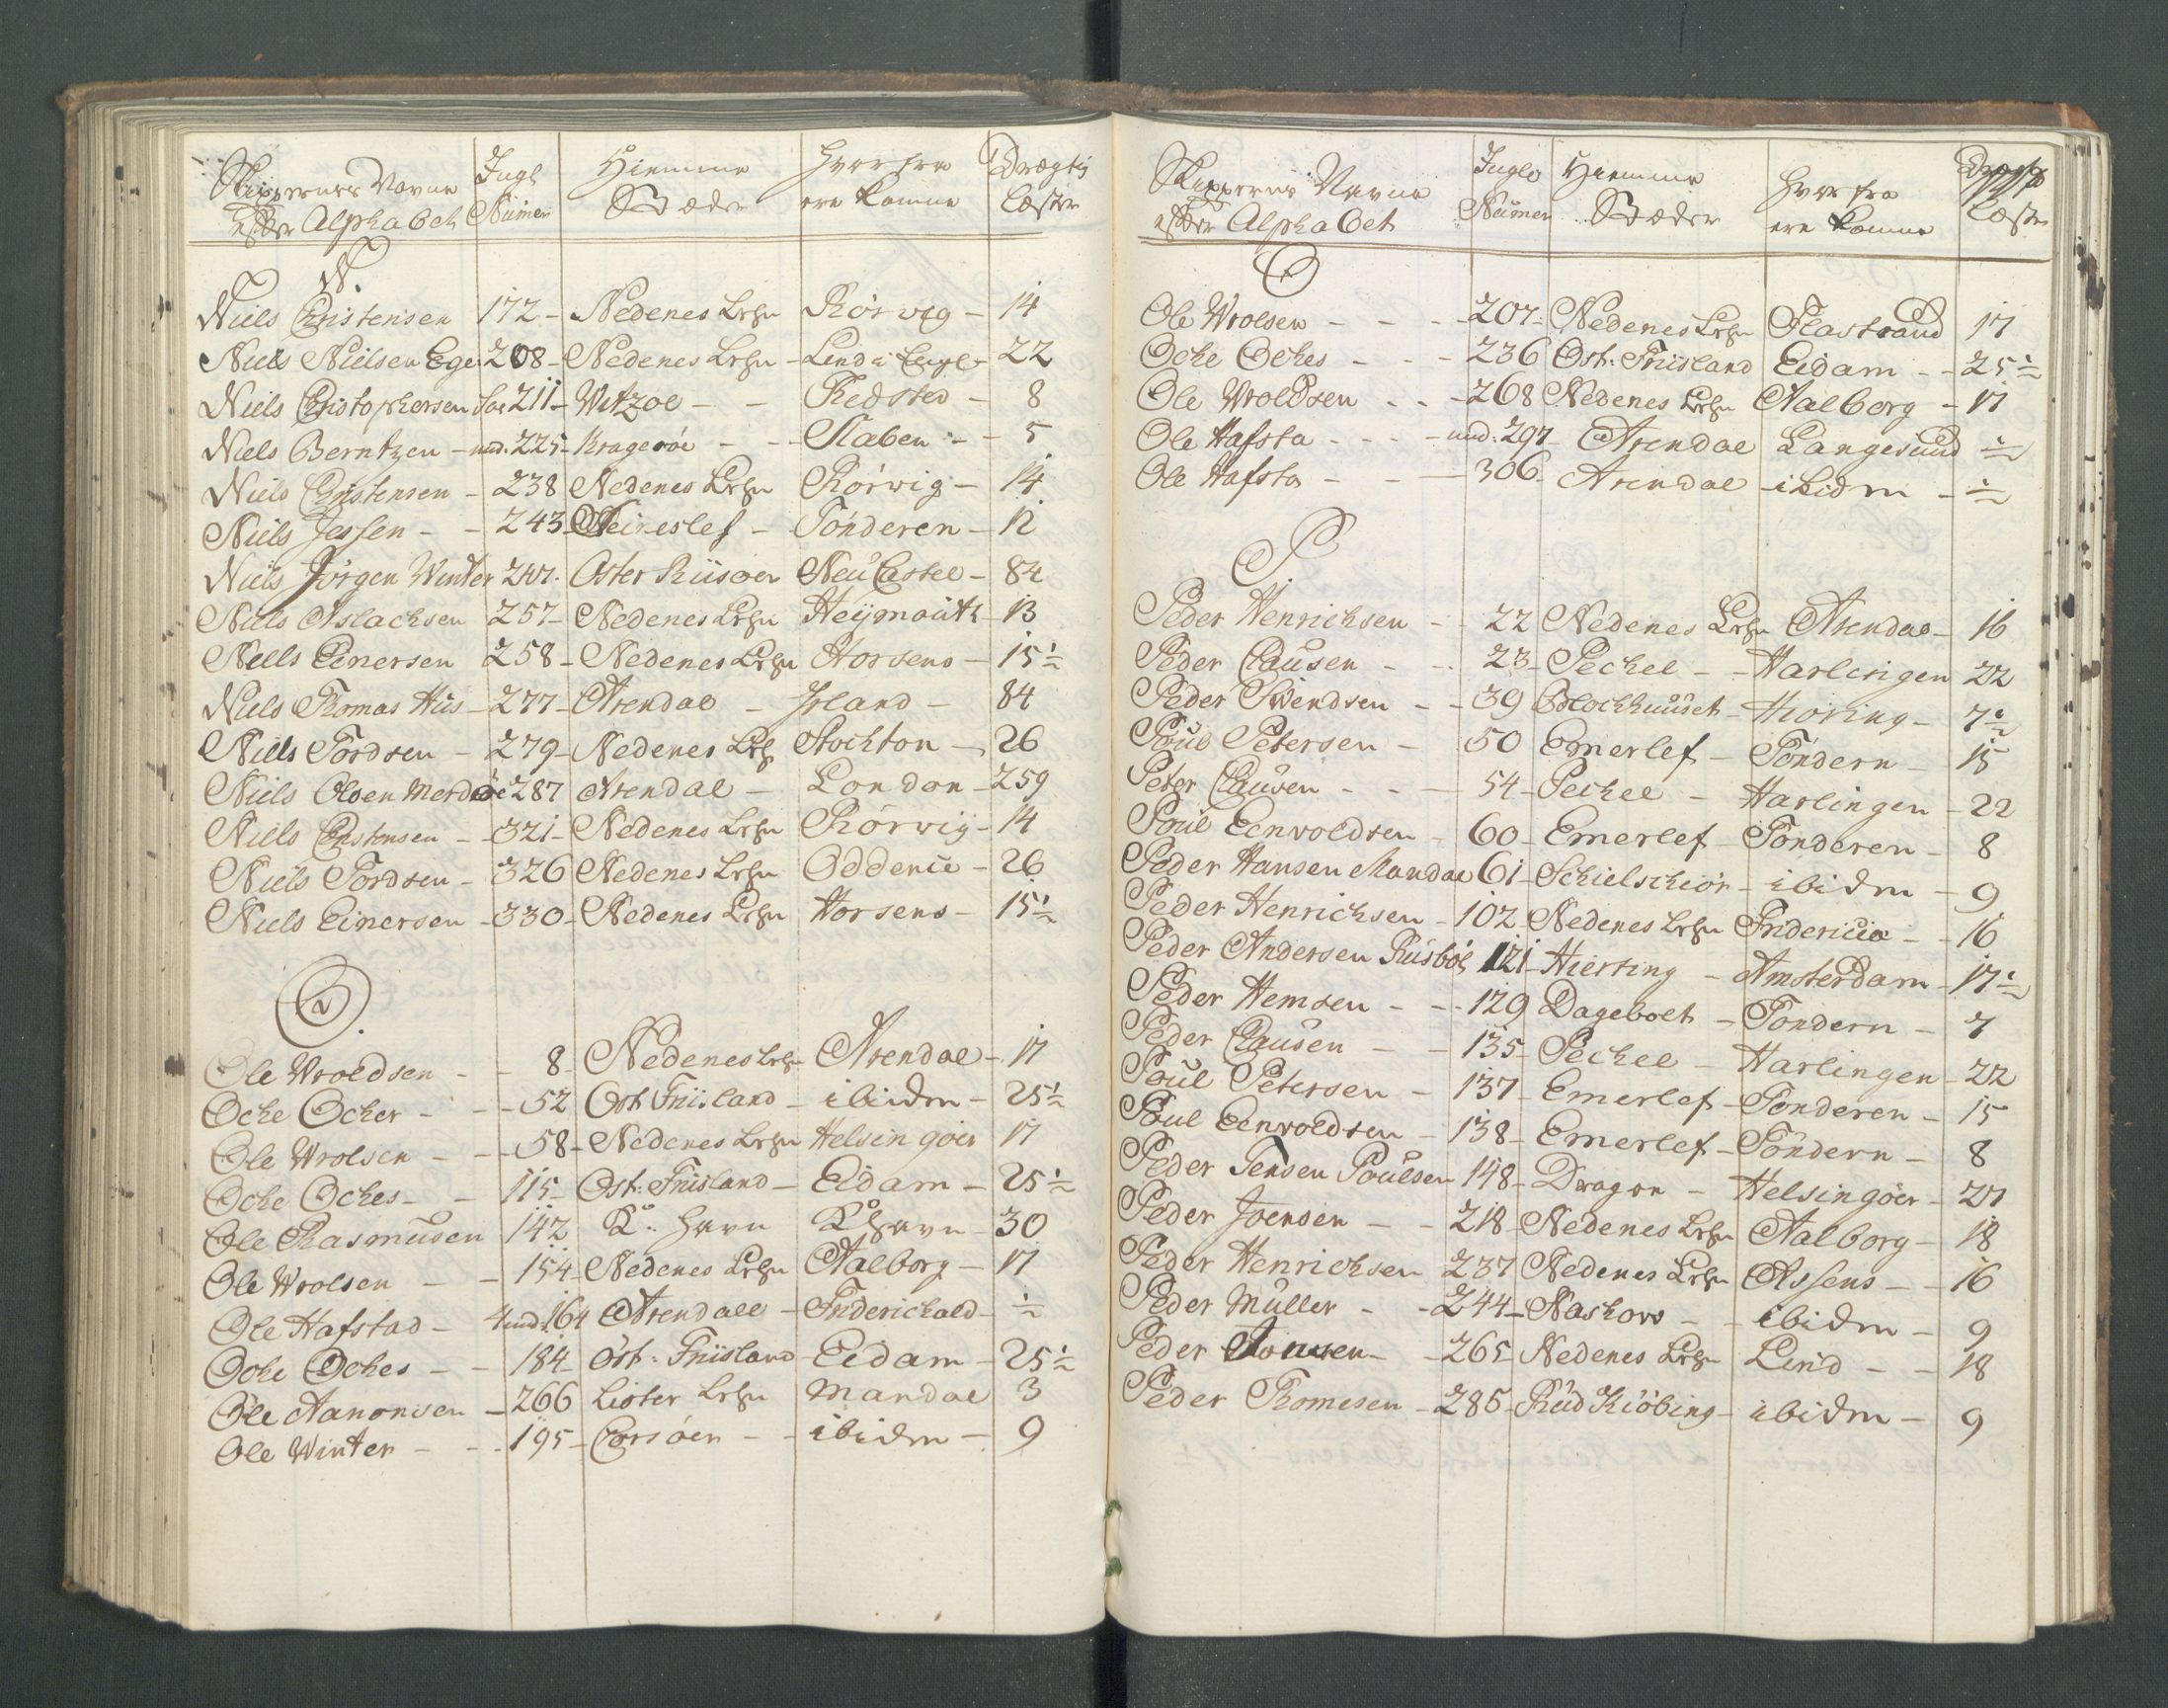 Skippernes Navne Jngl Hiemme Hvorfra Drægtig
efter Alphabeth Numer Stæder ere komne Læster
N.
Niels Christensen 172 - Nedenes Lehn Rörvig - 14
Niels Nielsen Ege 208 - Nedenes Lehn - Lend i Engl - 22
Niels Christophersen 211 - Witzoe - - Redsted - 8
Niels Berntzen - und. 225 - Krageröe - - Staben - - 5
Niels Christensen - 238 Nedenes Lehn Rörwig - 14
Niels Jessen - - 243 - - Tönderen - 12
Niels Jörgen Winter 247. Oster Riisoer NeuCastel - 84
Niels Aslachsen 257 - Nedenes Lehn Heÿmouth - 13
Niels Einersen 258 - Nedenes Lehn Horsens - 15½
Niels Thomas Hus - 277 - Arendal - Jrland - 84
Niels Tordsen - 279 - Nedenes Leh Stockton - 26
Niels Olsen Merdöe 287 Arendal - London - 259
Niels Christensen - - 321 - Nedenes Lehn Rörvig - 14
Niels Tordsen - 326 Nedenes Lehn Oddence - 26
Niels Einersen - 330 - Nedenes Lehn Horsens - 15½
O.
Ole Wroldsen - - 8 - Nedenes Lehn Arendal - 17
Ocke Ocker - - - 52 Ost Friisland - ibidm - 25½
Ole Wrolsen - - - 58 - Nedenes Lehn Helsingöer 17
Ocke Ockes - - 115 - Ost: Friisland - Eidam - 25½
Ole Rasmusen 142 K: havn K havn - 30
Ole Wrolsen - - 154 - Nedenes Lehn Aalborg - 17
Ole Hafstad - und 164 Arendall - Friderichald - ½
Ocke Ockes - - 184 Ost: Friisland - Eidam - 25½
Ole Aanonsen - 266 Lister Lehn Mandal 3
Ole Winter - - - 195 - Corsöer - - ibidm - 9
Skippernes Navne Jngl Hiemme Hvorfra Drægtig
efter Alphabet Numer Stæder ere komne Læster
O
Ole Wrolsen - - - 207: Nedenes Lehn Flastrand 17
Ocke Ockes - - - 236 Ost: Friisland Eidam - - 25½
Ole Wroldsen - - - 268 Nedenes Lehn Aalborg - 17
Ole Hafsta - - - - und: 297 - Arendal Langesund ½
Ole Hafsta - - - 306 - Arendal - ibidm - ½
P
Peder Henrichsen - - 22 Nedenes Lehn Arendal - 16
Peder Clausen - - 23 - Peckel - - Harlingen 22
Peder Swendsen - - 39 Blockhuuset - Hiöring - 7½
Poul Petersen - 50 Emerlef - Töndern - 15
Peter Clausen - - - 54 - Peckel - Harlingen - 22
Poul Eenvoldsen - 60 - Emerlef - Tönderen - 8
Peder Hansen Mandal 61 - Schielschiör - ibidm - 9
Peder Henrichsen - 102 - Nedenes Lehn Fridericia - - 16
Peder Andersen Riisböl 121 - Hierting - Amsterdam - 17½
Peder Hemsen - - - 129 Dagebolt - Tondern - 7
Peder Clausen - - 135 - Peckel - Harlingen - 22
Poul Petersen - 137 - Emerlef - Tonderen - 15
Poul Eenvoldsen - 138 - Emerlef - Töndern - 8
Peder Jensen Poulsen 148 - Dragor - Helsingöer - 27
Peder Joensen - - 218 - Nedenes Lehn Aalborg - 18
Peder Henrichsen 237 Nedenes Lehn Assens - - 16
Peder Müller - - 244 - Naskow - - ibidm - 9
Peder - - 265 - Nedenes Lehn Lend - - 18
Peder Thomesen - 285 - Rud Kiöbing - ibidm - 9